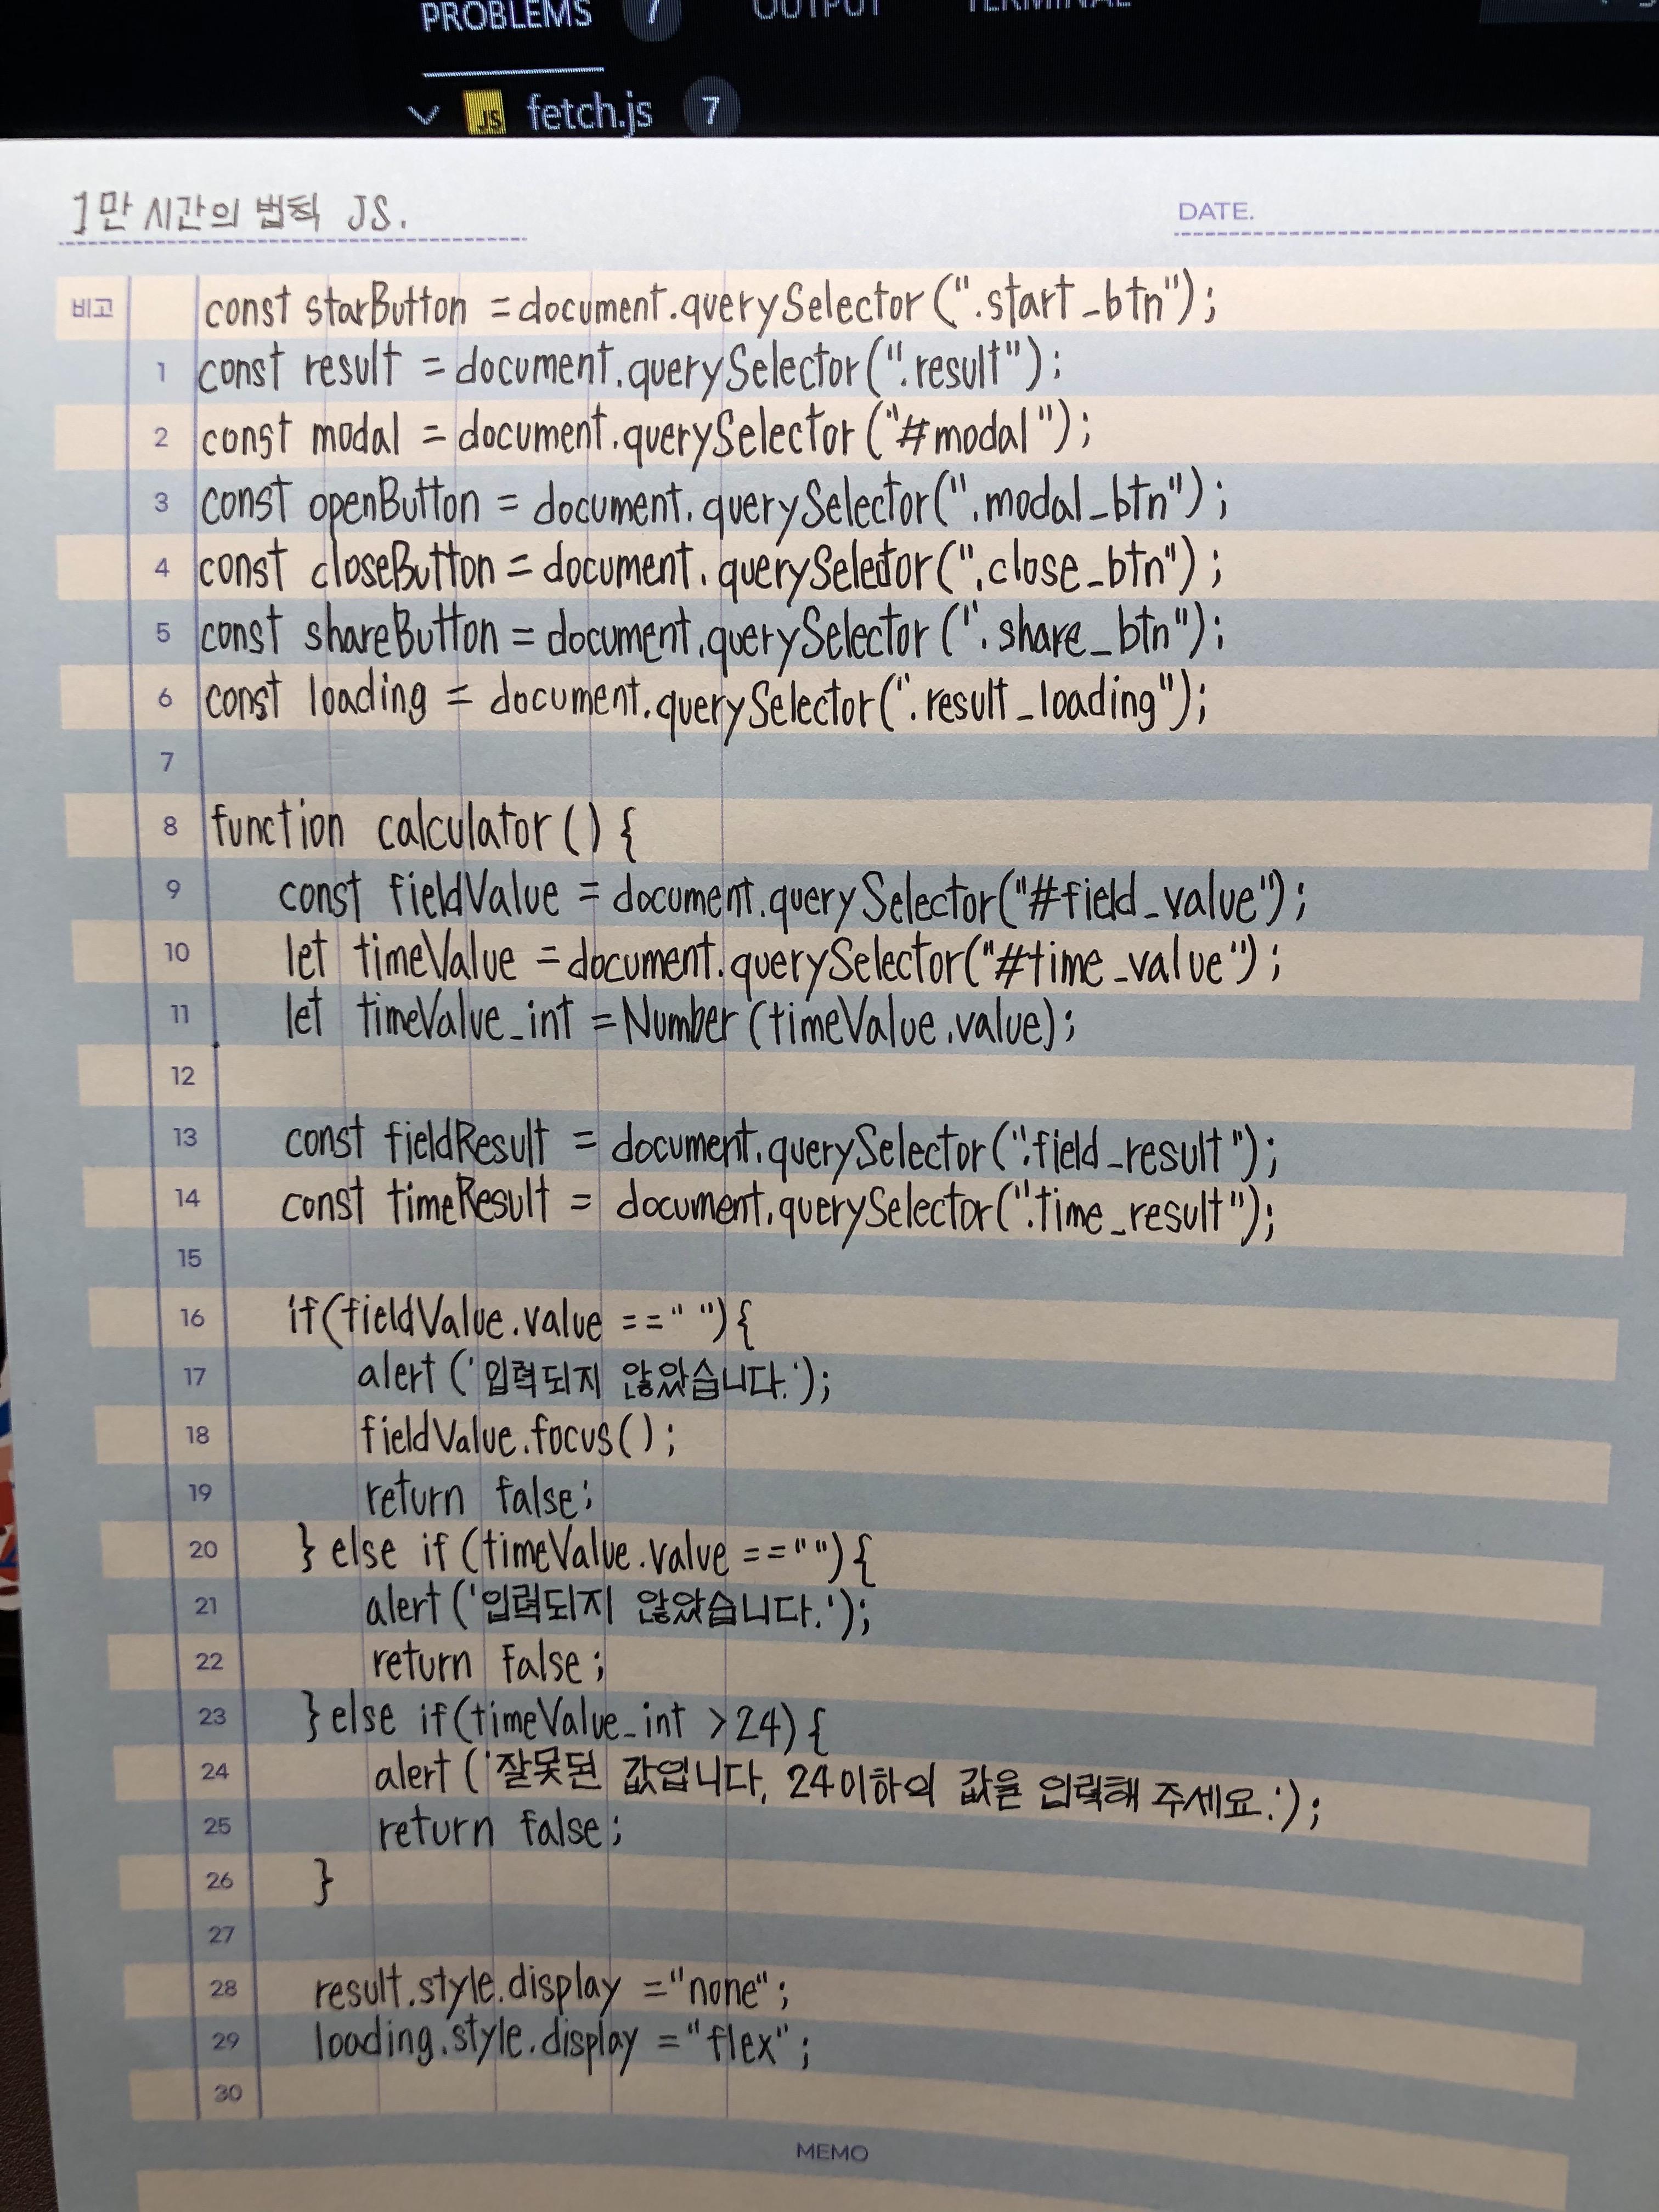 PROBLEMS 7 OUTPUT TERMINAL
JS fetch.js 7
1만 시간의 법칙 JS.
DATE.
비고 const starButton = document.querySelector(".start_btn");
1 const result = document.querySelector(".result");
2 const modal = document.querySelector("#modal");
3 const openButton = document.querySelector(".modal_btn");
4 const closeButton = document.querySelector(".close_btn");
5 const shareButton = document.querySelector(".share_btn");
6 const loading = document.querySelector(".result_loading");
7
8 function calculator() {
9 const fieldValue = document.querySelector("#field_value");
10 let timeValue = document.querySelector("#time_value");
11 let timeValue_int = Number(timeValue.value);
12
13 const fieldResult = document.querySelector(".field_result");
14 const timeResult = document.querySelector(".time_result");
15
16 if(fieldValue.value == " "){
17 alert('입력되지 않았습니다.');
18 fieldValue.focus();
19 return false;
20 } else if (timeValue.value == ""){
21 alert('입력되지 않았습니다.');
22 return false;
23 } else if(timeValue_int > 24) {
24 alert('잘못된 값입니다, 24이하의 값을 입력해 주세요.');
25 return false;
26 }
27
28 result.style.display = "none";
29 loading.style.display = "flex";
30
MEMO